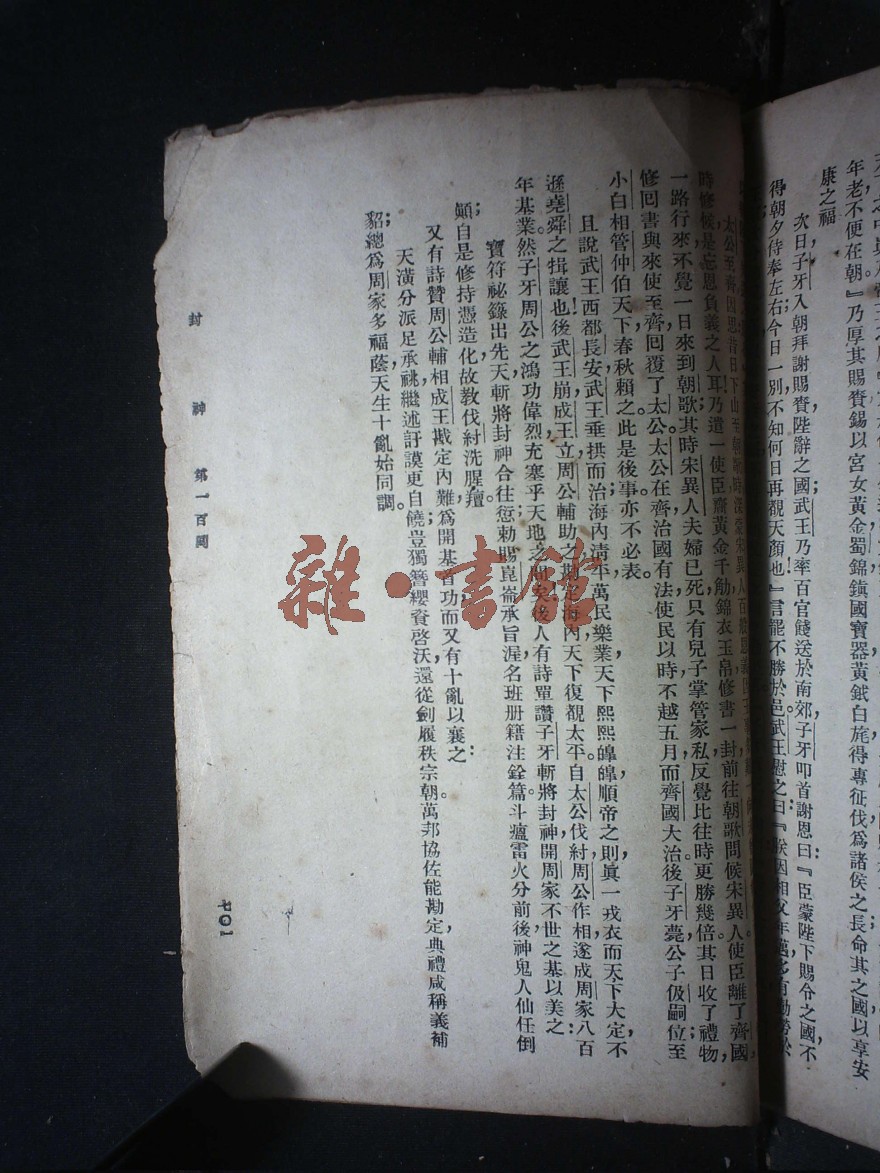 年老不便在朝』乃厚其賜賚錫以宮女黃金蜀錦鎮國寶器黃鉞白旄得專征伐爲諸侯之長命其之國以享安
康之福
次日子牙入朝拜謝賜賚陛辭之國武王乃率百官餞送於南郊子牙叩首謝恩曰：『臣蒙陛下賜令之國，不
得朝夕侍奉左右今日一別不知何日再覩天顏也！』言罷不勝於邑。武王慰之曰：『朕因相父年邁，多有勤勞於
太公至齊因思昔日下山至朝歌時深蒙宋異人百般恩義因王事
時修候是忘恩負義之人耳乃遣一使臣齎黃金千觔錦衣玉帛修書一封前往朝歌問候宋異人使臣離了齊國，
一路行來不覺一日來到朝歌其時宋異人夫婦已死只有兒子掌管家私反覺比往時更勝幾倍其日收了禮物，
修回書與來使至齊回覆了太公太公在齊治國有法使民以時不越五月而齊國大治後子牙薨公子伋嗣位至
小白相管仲伯天下春秋賴之此是後事亦不必表。
且說武王西都長安武王垂拱而治海內清平萬民樂業天下熙熙皥皥順帝之則眞一戎衣而天下大定不
遜堯舜之揖讓也！後武王崩成王立周公輔助之勘定海內天下復覩太平自太公伐紂周公作相遂成周家八百
年基業然子牙周公之鴻功偉烈充塞乎天地之間矣後人有詩單讚子牙斬將封神開周家不世之基以美之：
寶符祕錄出先天斬將封神合往愆勅賜崑崙承旨渥名班册籍注銓篇斗瘟雷火分前後神鬼人仙任倒
顚自是修持憑造化故教伐紂洗腥羶。
又有詩贊周公輔相成王戡定內難爲開基首功而又有十亂以襄之。
天潢分派足承祧繼述訏謨更自饒；豈獨簪纓資啓沃還從劍履秩宗朝萬邦協佐能勘定典禮咸稱義補
貂總爲周家多福蔭天生十亂始同調。
封神 第一百囘
七〇一
雜·書館